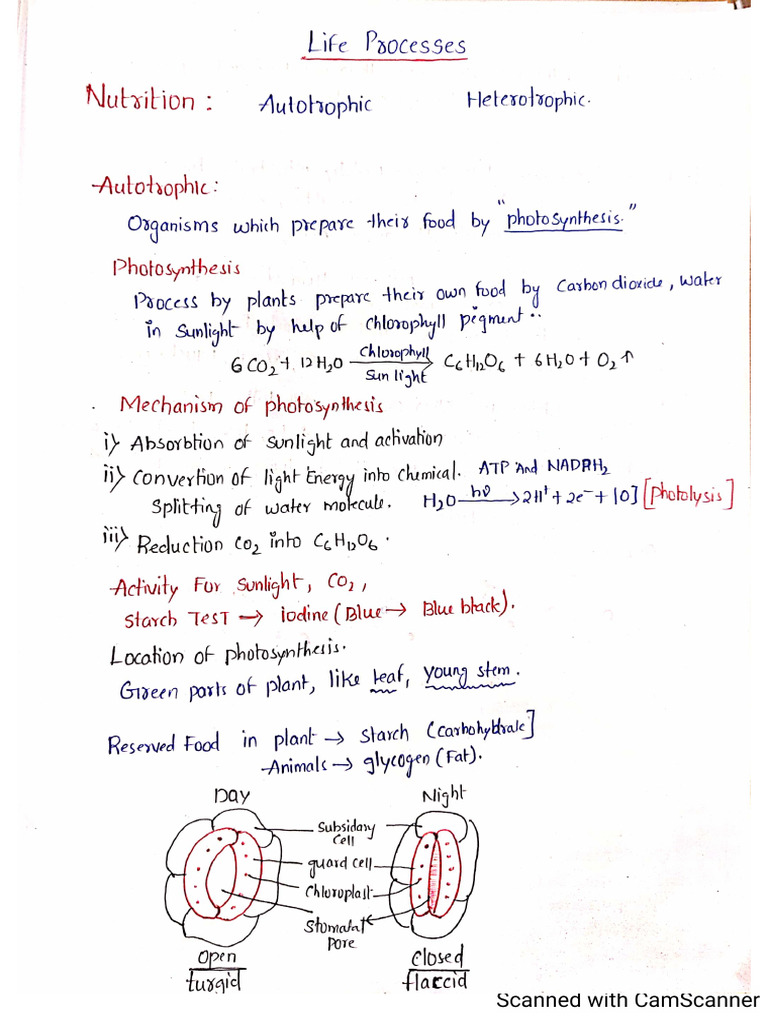 Life Processes
Nutrition: Autotrophic Heterotrophic.
Autotrophic:
Organisms which prepare their food by "photosynthesis."
Photosynthesis
Process by plants prepare their own food by Carbon dioxide, water
in sunlight by help of chlorophyll pigment..
6CO₂ + 12H₂O Chlorophyll Sun light → C₆H₁₂O₆ + 6H₂O + O₂↑
Mechanism of photosynthesis
i) Absorbtion of sunlight and activation
ii) Convertion of light Energy into chemical. ATP And NADPH₂
Splitting of water molecule. H₂O hν → 2H⁺ + 2e⁻ + [O] [Photolysis]
iii) Reduction CO₂ into C₆H₁₂O₆.
Activity For sunlight, CO₂,
Starch TEST → iodine (Blue → Blue black).
Location of photosynthesis.
Green parts of plant, like leaf, young stem.
Reserved Food in plant → starch (carbohydrate]
Animals → glycogen (Fat).
Day Night
Subsidary
cell
guard cell
Chloroplast
Stomatal
pore
Open Closed
turgid flaccid
Scanned with CamScanner